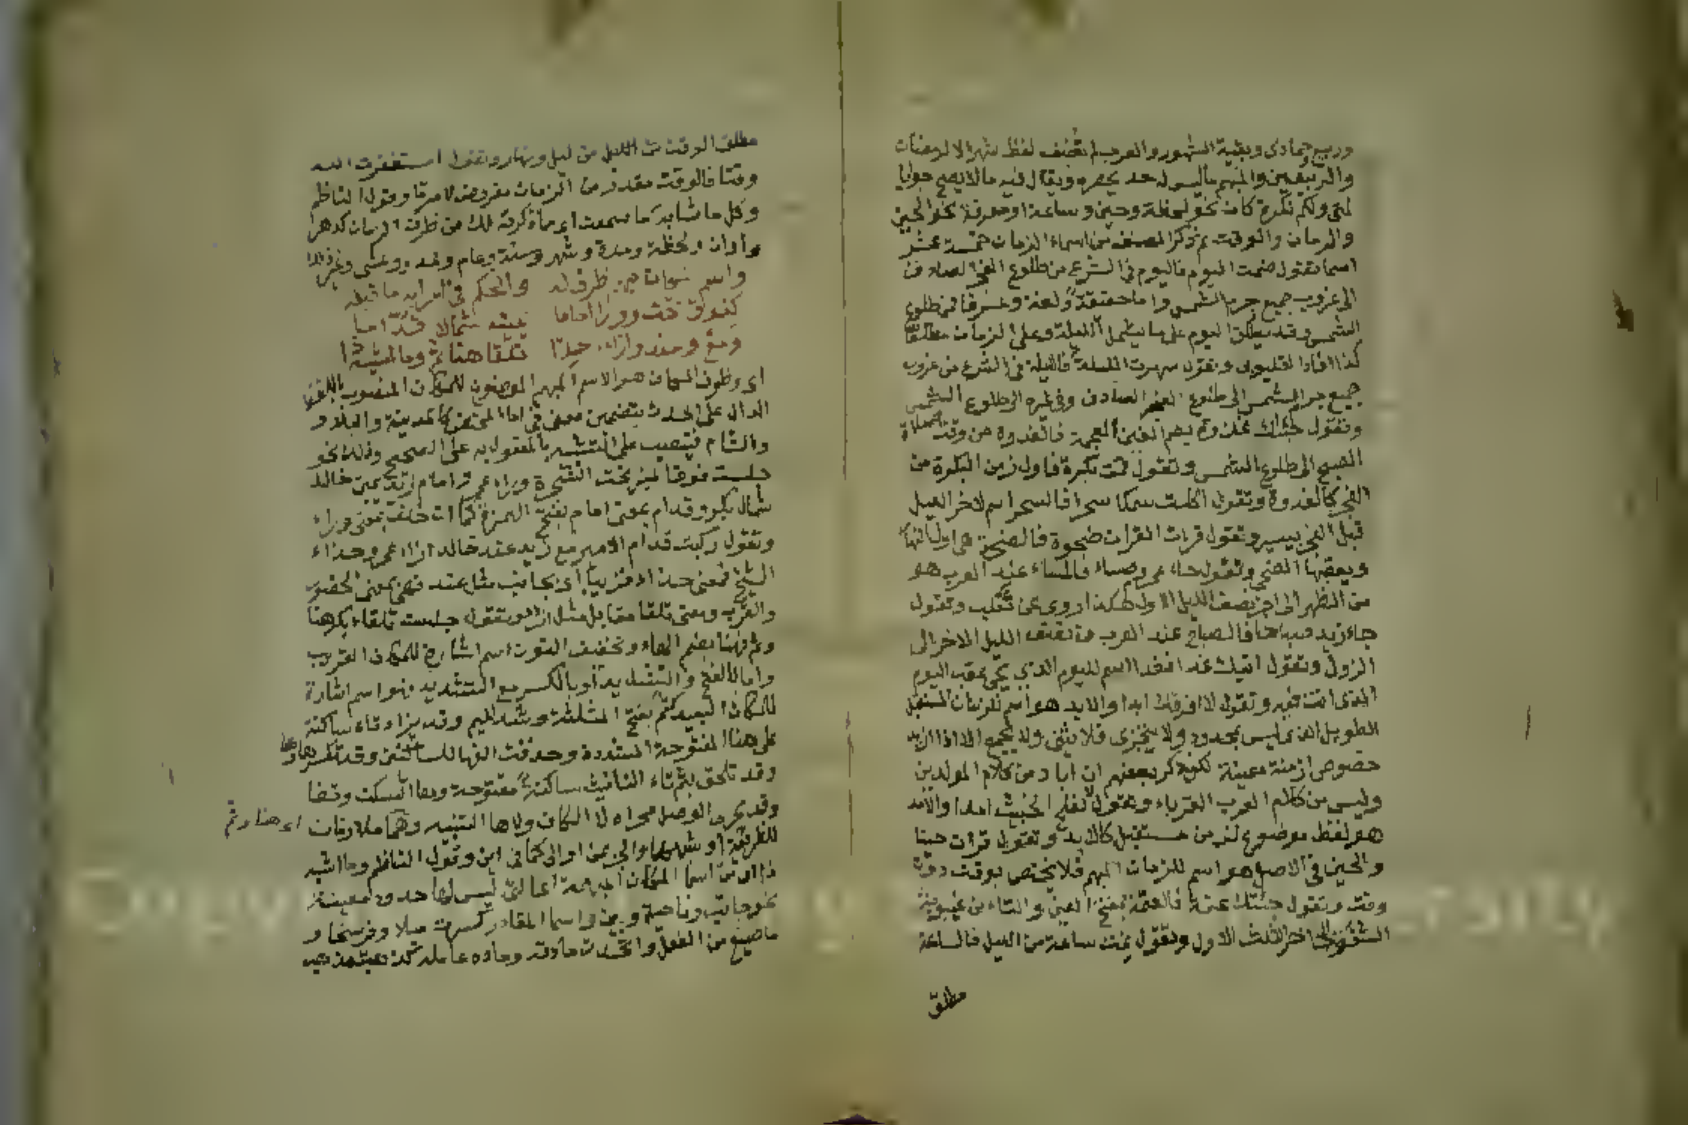 وربيع جمادى وبقية الشهور والعرب لم تضف لفظ شهر الا لرمضان
والربيعين والمبهم ماليس له حد يحصره ويقال فيه مالا يصح جوابا
لمتى ولكم نكرة كان نحو لحظة وحين وساعة او معرفة نحو الحين
والزمان والوقت ثم ذكر المصنف من اسماء الزمان خمسة عشر
اسما تقول صمت اليوم فاليوم في الشرع من طلوع الفجر الصادق
الى غروب جميع جرم الشمس واما حقيقة ولغة وعرفا فمن طلوع
الشمس وقد يطلق اليوم على ما يشمل الليلة وعلى الزمان مطلقا
كذا افاد القليوبى وتقول سهرت الليلة فالليلة في الشرع من غروب
جميع جرم الشمس الى طلوع الفجر الصادق وفي غيره الى طلوع الشمس
وتقول جئتك غدوة بضم الغين المعجمة فالغدوة من وقت صلاة
الصبح الى طلوع الشمس وتقول قمت بكرة فاول زمن البكرة من
الفجر كالغدوة وتقول اكلت سمكا سحرا فالسحر اسم لاخر الليل
قبل الفجر بيسير وتقول قرات القران ضحوة فالضحوة هي اول النهار
وبعدها الضحى وتقول جاء عمرو مساء فالمساء عند العرب هو
من الظهر الى اخر نصف الليل الاول هكذا روى عن ثعلب وتقول
جاء زيد صباحا فالصباح عند العرب من نصف الليل الاخر الى
الزوال وتقول اتيك غدا فغدا اسم لليوم الذي يجي عقب اليوم
الذى انت فيه وتقول لا افارقك ابدا والابد هو اسم للزمان المستقبل
الطويل الذى ليس بمحدود ولا يتجزى فلا يثنى ولا يجمع الا اذا اريد
خصوص ازمنة معينة لكن ذكر بعضهم ان اباد من كلام المولدين
وليس من كلام العرب العرباء وتقول لا يفلح الخبيث امدا والامد
هو لفظ موضوع لزمن مستقبل كالابد وتقول قرات حينا
والحين في الاصل هو اسم للزمان المبهم فلا يختص بوقت دون
وقت وتقول جئتك عتمة فالعتمة بفتح العين والتاء من غيبوبة
الشفق الى اخر الثلث الاول وتقول نمت ساعة من الليل فالساعة
مطلق
مطلق الوقت من ليل ونهار وتقول استغفرت الله
وقتا فالوقت مقدار من الزمان مفروض لامر ما وقول الناظم
وكل ما شابه ما سمعت اى ما ذكرته لك من ظرف الزمان كدهر
واوان ولحظة ومدة وشهر وسنة وعام
ظرف له والحكم في
كفوق تحت وورا اماما شمالا
ومع وعند وازاء حذا تلقا هنا ثم وما
اى وظرف المكان هو الاسم المبهم الموضوع للمكان المنصوب باللفظ
الدال على الحدث بتضمين معنى في اما المختص كالمدينة والبلاد
والشام فينصب على التشبيه بالمفعول به على الصحيح وذلك نحو
جلست فوق المنبر تحت الشجرة وراء عمرو امام زيد يمين خالد
شمال بكر وقدام بمعنى امام بفتح الهمزة كما ان خلف بمعنى وراء
وتقول ركبت قدام الامير مع زيد عند خالد ازاء عمرو حذاء
الشيخ فمعنى حذا قريبا اى بجانب مثل عند فهي بمعنى الحضور
والقرب ومعنى تلقا مقابل مثل ازاء وتقول جلست تلقاء بكر هنا
بضم الهاء وتخفيف النون اسم اشارة للمكان القريب
واما بالفتح والتشديد او بالكسر مع التشديد فهو اسم اشارة
للمكان البعيد كثم بفتح المثلثة وشد الميم وقد يزاد تاء ساكنة
على هنا المفتوحة المشددة وحذفت الفها للساكنين وقد تكسر هاؤها
وقد تلحق بثم تاء التانيث ساكنة او مفتوحة وها السكت وقفا
وقد يجرى الوصل مجراه لا الكاف ولاها التنبيه وهما ملازمان
اى هنا وثم
للظرفية او شبهها والجر بمن او الى كما في اين وقول الناظم وما اشبه
ذا اى من اسماء المكان المبهمة اعنى التى ليس لها حدود معينة
نحو جانب وناحية وبين واسماء المقادر كسرت ميلا وفرسخا و
ما صيغ من الفعل واتحدت مادته ومادة عامله